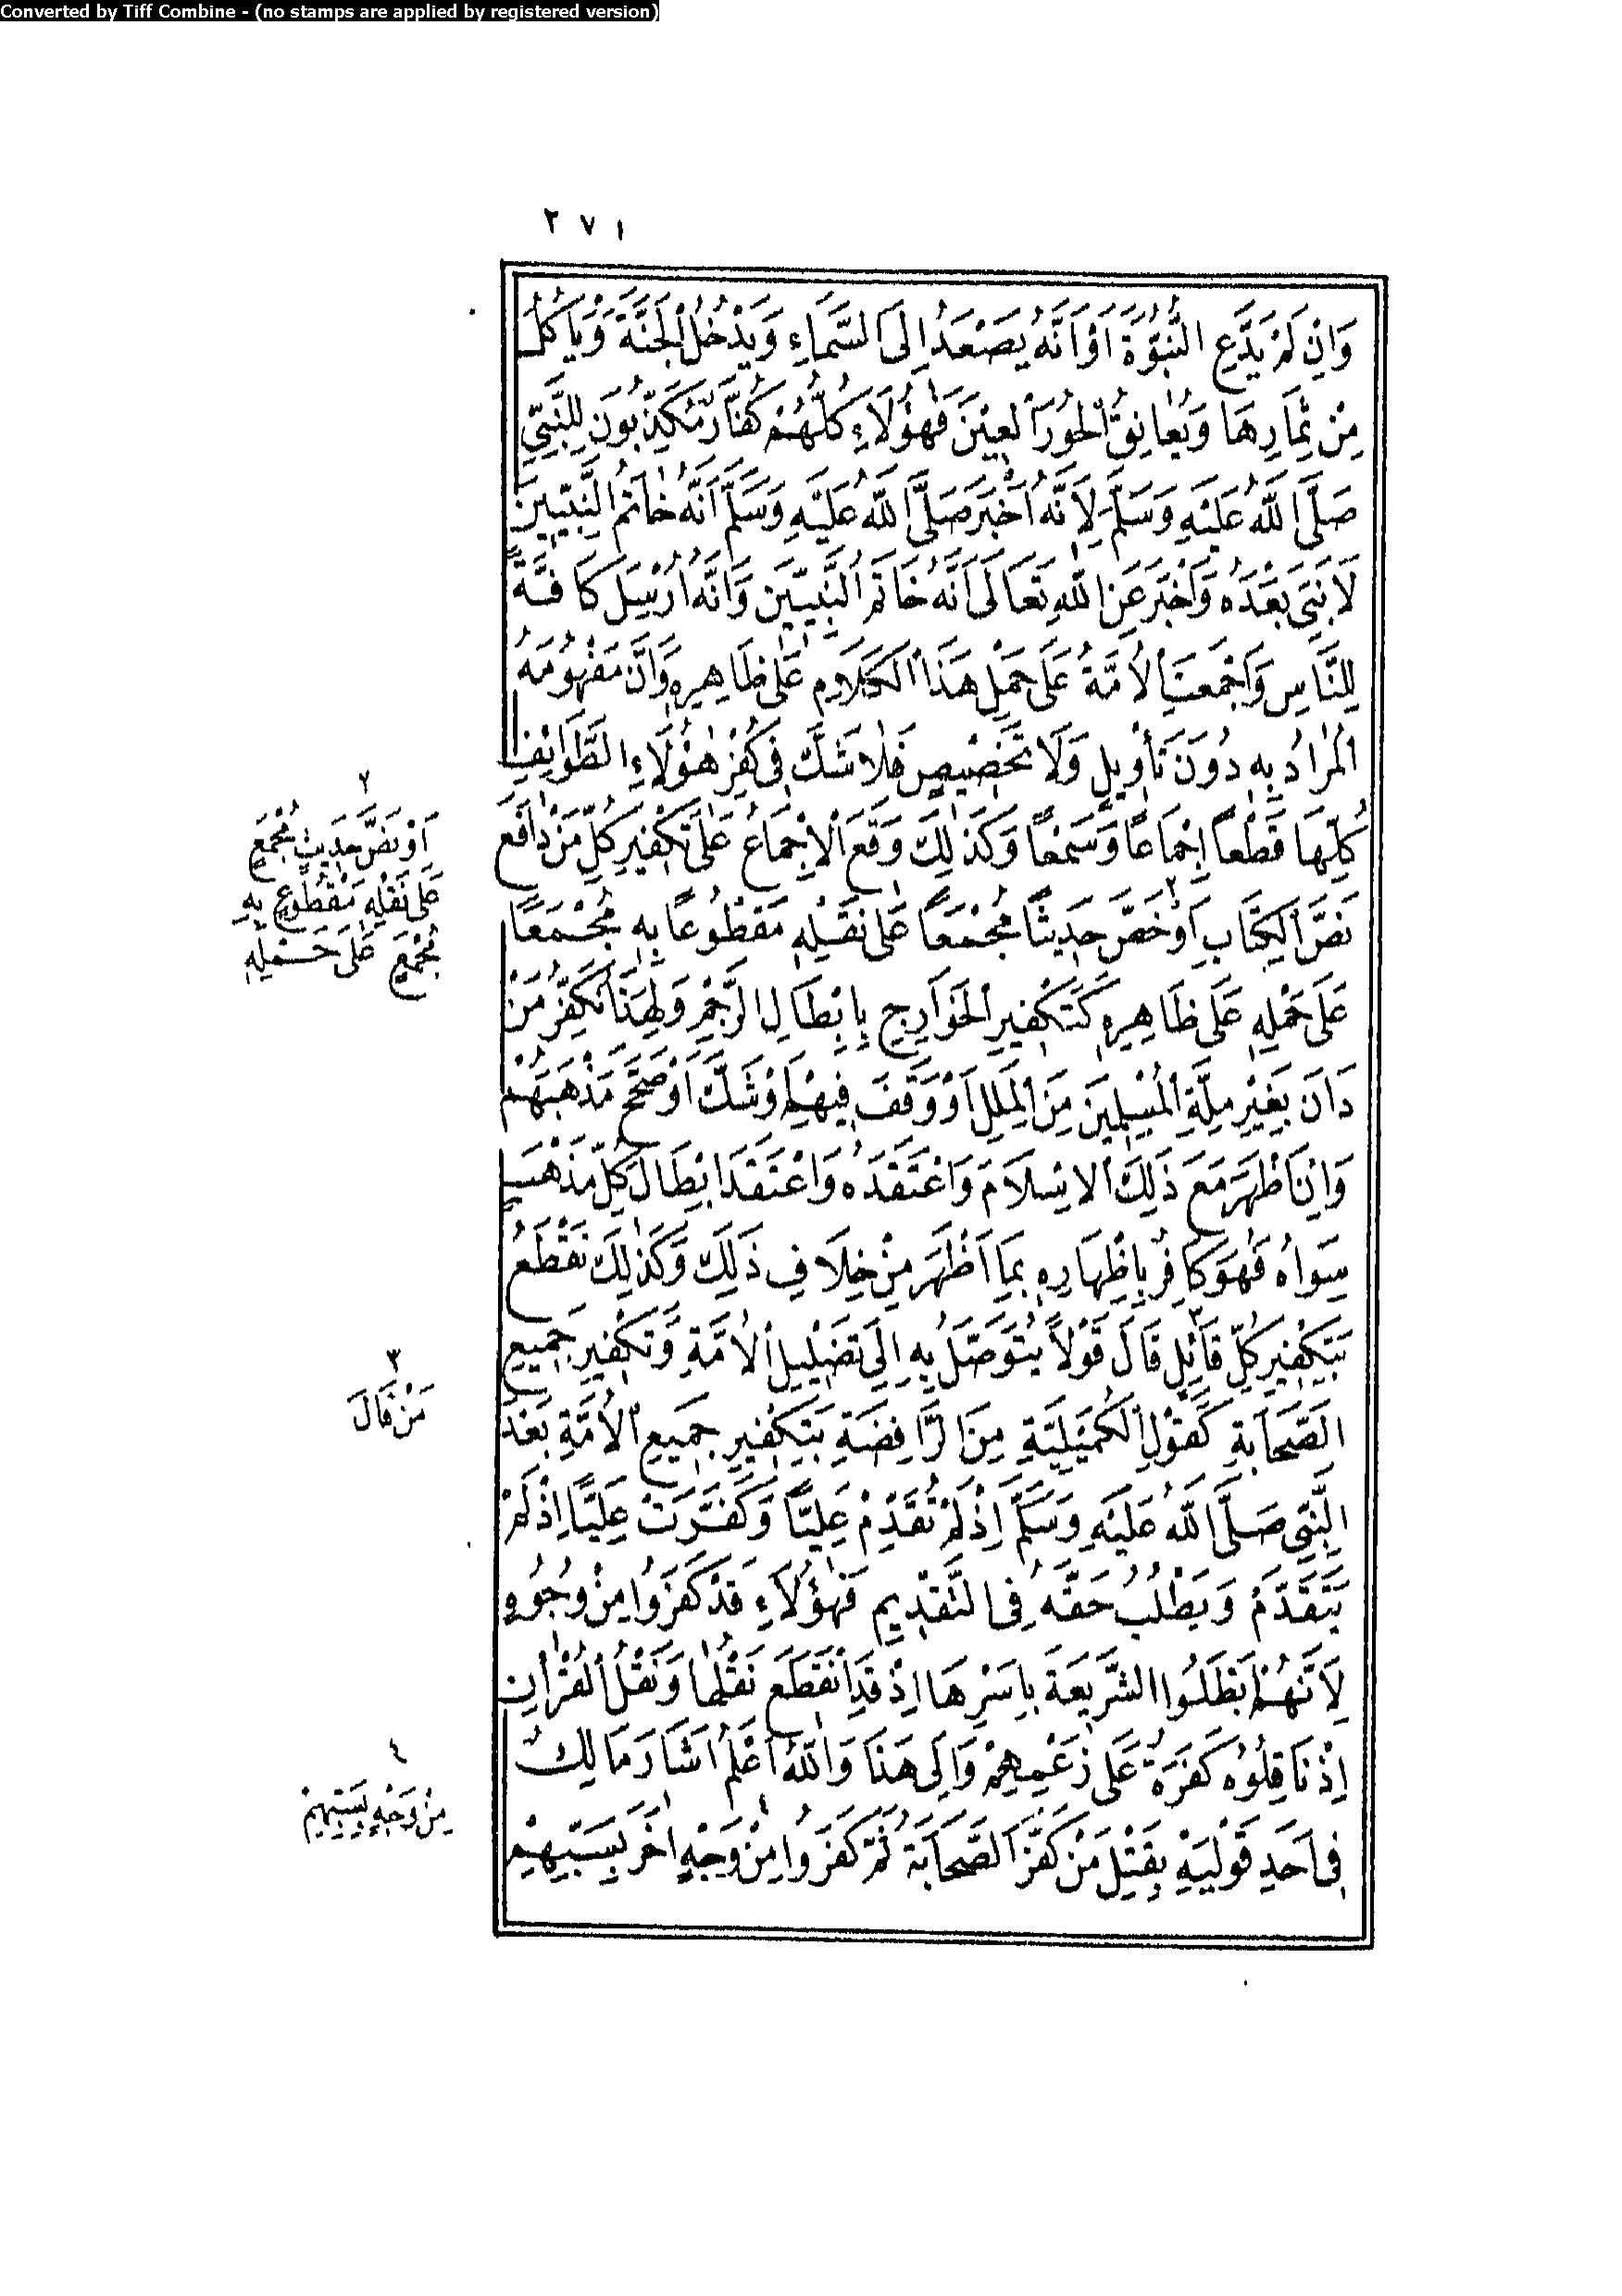 Converted by Tiff Combine - (no stamps are applied by registered version)
٢٧١
وَاِنْ لَمْ يَدَّعِ النُّبُوَّةَ اَوْ اَنَّهُ يَصْعَدُ اِلَى السَّمَاءِ وَيَدْخُلُ الْجَنَّةَ وَيَأْكُلُ
مِنْ ثِمَارِهَا وَيُعَانِقُ الْحُورَ الْعِيْنَ فَهٰؤُلَاءِ كُلُّهُمْ كُفَّارٌ مُكَذِّبُونَ لِلنَّبِيِّ
صَلَّى اللّٰهُ عَلَيْهِ وَسَلَّمَ لِاَنَّهُ اَخْبَرَ صَلَّى اللّٰهُ عَلَيْهِ وَسَلَّمَ اَنَّهُ خَاتَمُ النَّبِيّينَ
لَا نَبِيَّ بَعْدَهُ وَاَخْبَرَ عَنِ اللّٰهِ تَعَالَى اَنَّهُ خَاتَمُ النَّبِيّينَ وَاَنَّهُ اُرْسِلَ كَافَّةً
لِلنَّاسِ وَاَجْمَعَتِ الْاُمَّةُ عَلَى حَمْلِ هَذَا الْكَلَامِ عَلَى ظَاهِرِهِ وَاَنَّ مَفْهُومَهُ
الْمُرَادُ بِهِ دُونَ تَأْوِيلٍ وَلَا تَخْصِيصٍ فَلَا شَكَّ فِى كُفْرِ هٰؤُلَاءِ الطَّوَائِفِ
كُلِّهَا قَطْعاً اِجْمَاعاً وَسَمْعاً وَكَذٰلِكَ وَقَعَ الْاِجْمَاعُ عَلَى تَكْفِيرِ كُلِّ مَنْ دَافَعَ
نَصَّ الْكِتَابِ اَوْ خَصَّ حَدِيثاً مُجْمَعاً عَلَى نَقْلِهِ مَقْطُوعًا بِهِ مُجْمَعًا
عَلَى حَمْلِهِ عَلَى ظَاهِرِهِ كَتَكْفِيرِ الْخَوَارِجِ بِاِبْطَالِ الرَّجْمِ وَلِهَذَا نُكَفِّرُ مَنْ
دَانَ بِغَيْرِ مِلَّةِ الْمُسْلِمِينَ مِنَ الْمِلَلِ اَوْ وَقَفَ فِيهِمْ اَوْ شَكَّ اَوْ صَحَّحَ مَذْهَبَهُمْ
وَاِنْ اَظْهَرَ مَعَ ذَلِكَ الْاِسْلَامَ وَاعْتَقَدَهُ وَاعْتَقَدَ اِبْطَالَ كُلِّ مَذْهَبٍ
سِوَاهُ فَهُوَ كَافِرٌ بِاِظْهَارِهِ بِمَا اَظْهَرَ مِنْ خِلَافِ ذَلِكَ وَكَذٰلِكَ نَقْطَعُ
بِتَكْفِيرِ كُلِّ قَائِلٍ قَالَ قَوْلاً يُتَوَصَّلُ بِهِ اِلَى تَضْلِيلِ الْاُمَّةِ وَتَكْفِيرِ جَمِيعِ
الصَّحَابَةِ كَقَوْلِ الْكُمَيْلِيَّةِ مِنَ الرَّافِضَةِ بِتَكْفِيرِ جَمِيعِ الْاُمَّةِ بَعْدَ
النَّبِيِّ صَلَّى اللّٰهُ عَلَيْهِ وَسَلَّمَ اِذْ لَمْ تُقَدِّمْ عَلِيّاً وَكَفَّرَتْ عَلِيّاً اِذْ لَمْ
يَتَقَدَّمْ وَيَطْلُبْ حَقَّهُ فِى التَّقْدِيمِ فَهٰؤُلَاءِ قَدْ كَفَرُوا مِنْ وُجُوهٍ
لِاَنَّهُمْ اَبْطَلُوا الشَّرِيعَةَ بِاَسْرِهَا اِذْ قَدِ انْقَطَعَ نَقْلُهَا وَنَقْلُ الْقُرْاٰنِ
اِذْ نَاقِلُوهُ كَفَرَةٌ عَلَى زَعْمِهِمْ وَاِلَى هَذَا وَاللّٰهُ اَعْلَمُ اَشَارَ مَالِكٌ
فِى اَحَدِ قَوْلَيْهِ بِقَتْلِ مَنْ كَفَّرَ الصَّحَابَةَ ثُمَّ كَفَرُوا مِنْ وَجْهٍ اٰخَرَ بِسَبِّهِمْ
٢
اَوْ نَصَّ حَدِيثٍ مُجْمَعٍ
عَلَى نَقْلِهِ مَقْطُوعٍ بِهِ
مُجْمَعٍ عَلَى حَمْلِهِ
٣
مَنْ قَالَ
٤
مِنْ وَجْهٍ بِسَبِّهِمْ